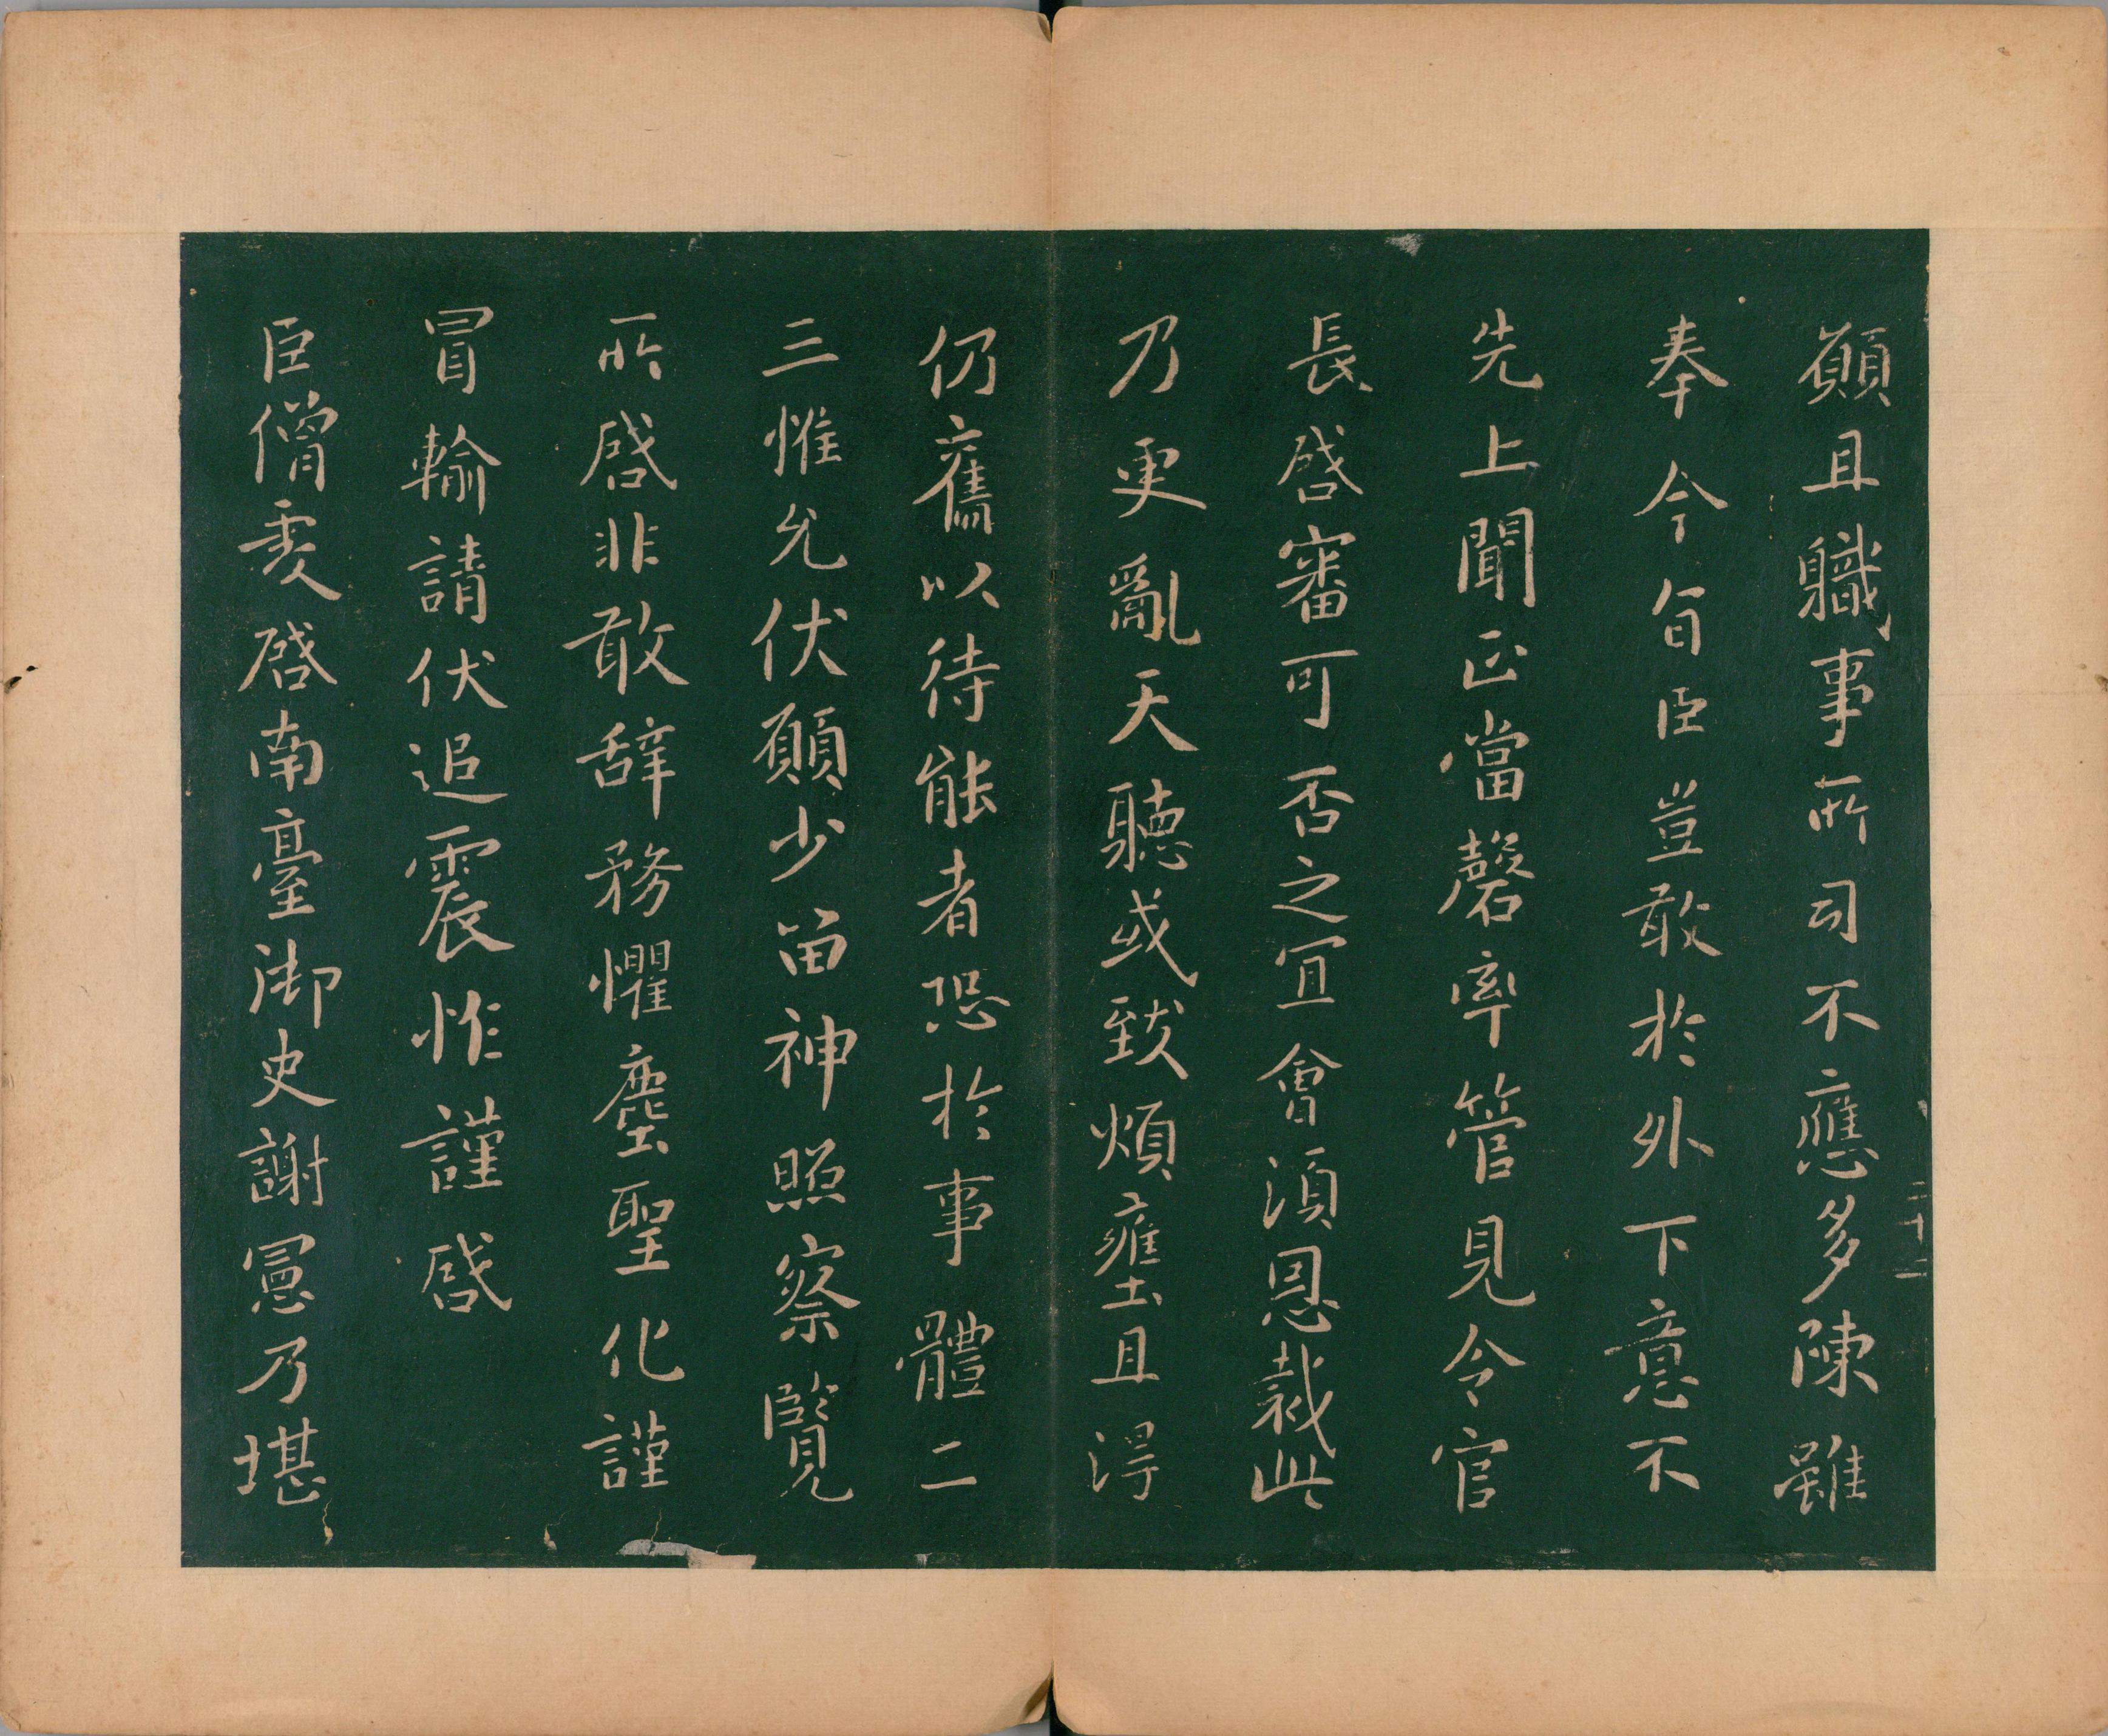 願且職事所司不應多陳雖
二十二
奉今旨臣豈敢於外下意不
先上聞正當罄率管見令官
長啓審可否之宜會須恩裁此
乃更亂天聽或致煩壅且得
仍舊以待能者恐於事體二
三惟允伏願少留神照察覽
所啓非敢辞務懼塵聖化謹
冒輸請伏追震怍謹啓
臣僧虔啓南臺御史謝憲乃堪